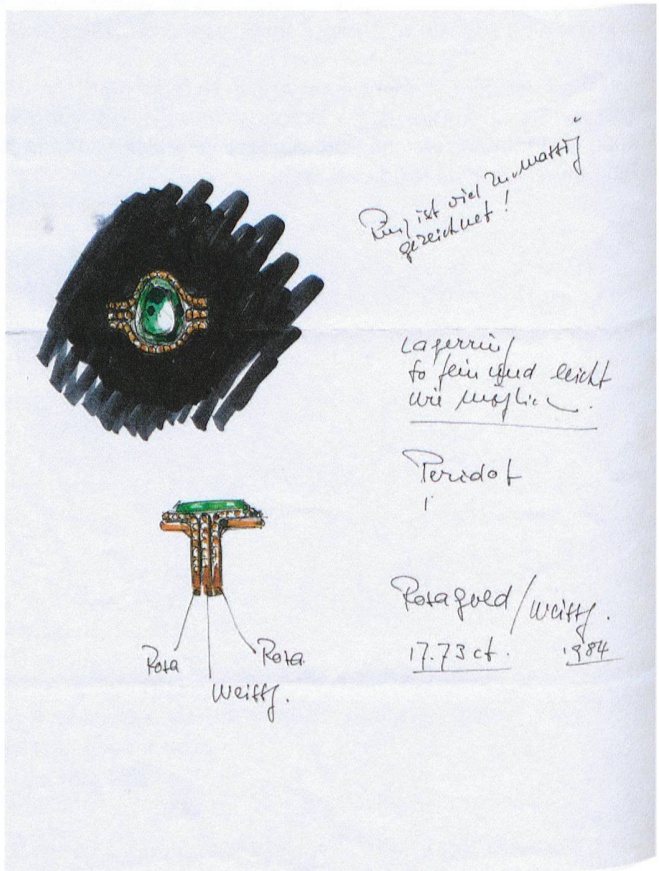 Ring ist viel zu massig
gezeichnet!
Lagerring
so fein und leicht
wie möglich.
Peridot
Rosagold/weissg.
17.73 ct. 1984
Rosa Rosa
weissg.